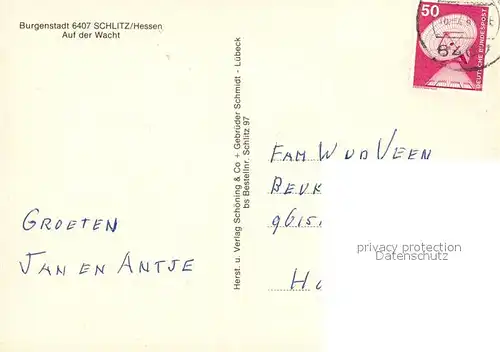 Burgenstadt 6407 SCHLITZ/Hessen
Auf der Wacht
GROETEN
JAN EN ANTJE
Herst. u. Verlag Schöning & Co + Gebrüder Schmidt - Lübeck
bs Bestellnr. Schlitz 97
50
DEUTSCHE BUNDESPOST
FAM W VD VEEN
BEUK
9615
privacy protection
Datenschutz
H